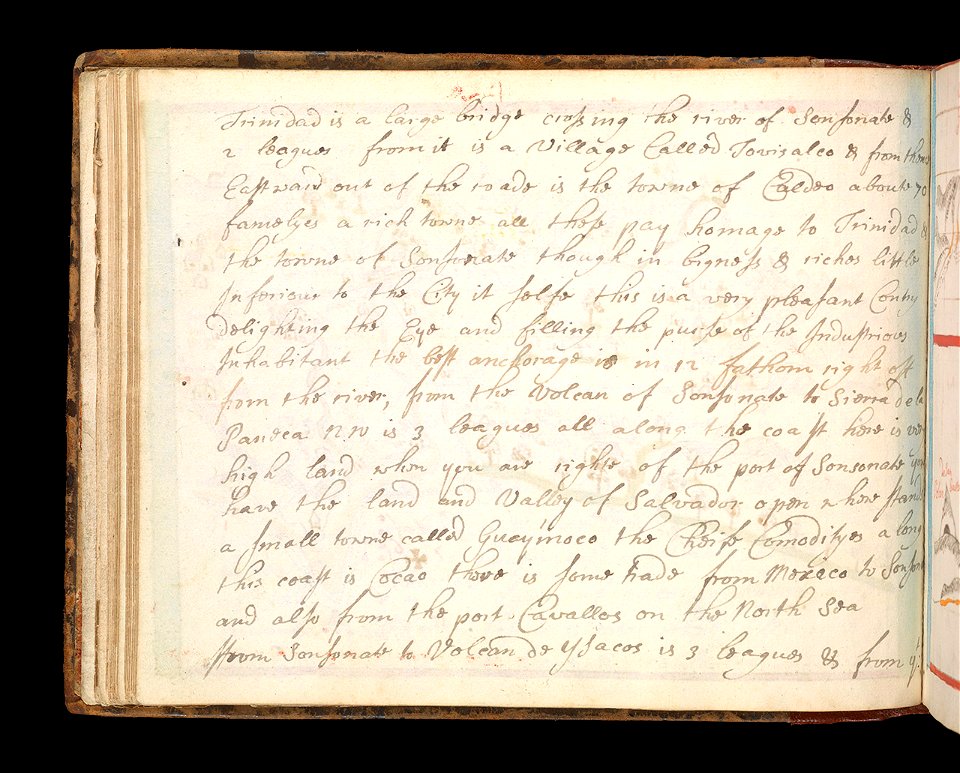 Trinidad is a large bridge crossing the river of Sonsonate &
2 leagues from it is a Village Called Tovisalco & from thence
Eastward out of the roade is the towne of Caldeo aboute 70
famelyes a rich towne all these pay homage to Trinidad &
the towne of Sonsonate though in bigness & riches little
Inferiour to the City it selfe this is a very pleasant Contry
delighting the Eye and filling the purse of the Industrious
Inhabitant the best anchorage is in 12 fathom right off
from the river, from the Volcan of Sonsonate to Sierra de la
Paneca NW is 3 leagues all along the coast here is very
high land when you are righte of the port of Sonsonate you
have the land and Valley of Salvador open & here stands
a small towne called Guaymoco the Cheife Comodityes along
this coast is Cocao there is some trade from Mexeco to Sonson
and also from the port Cavallos on the North Sea
from Sonsonate to Volcan de Ysacos is 3 leagues & from yt